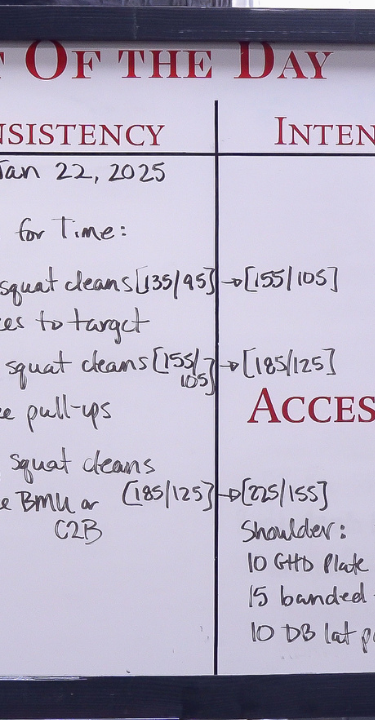 OF THE DAY
NSISTENCY
INTEN
Jan 22, 2025
for Time:
squat cleans [135/95] → [155/105]
es to target
squat cleans [155/105] → [185/125]
e pull-ups
ACCES
squat cleans
[185/125] → [225/155]
e BMU or
C2B
Shoulder:
10 GHD Plate
15 banded
10 DB lat p